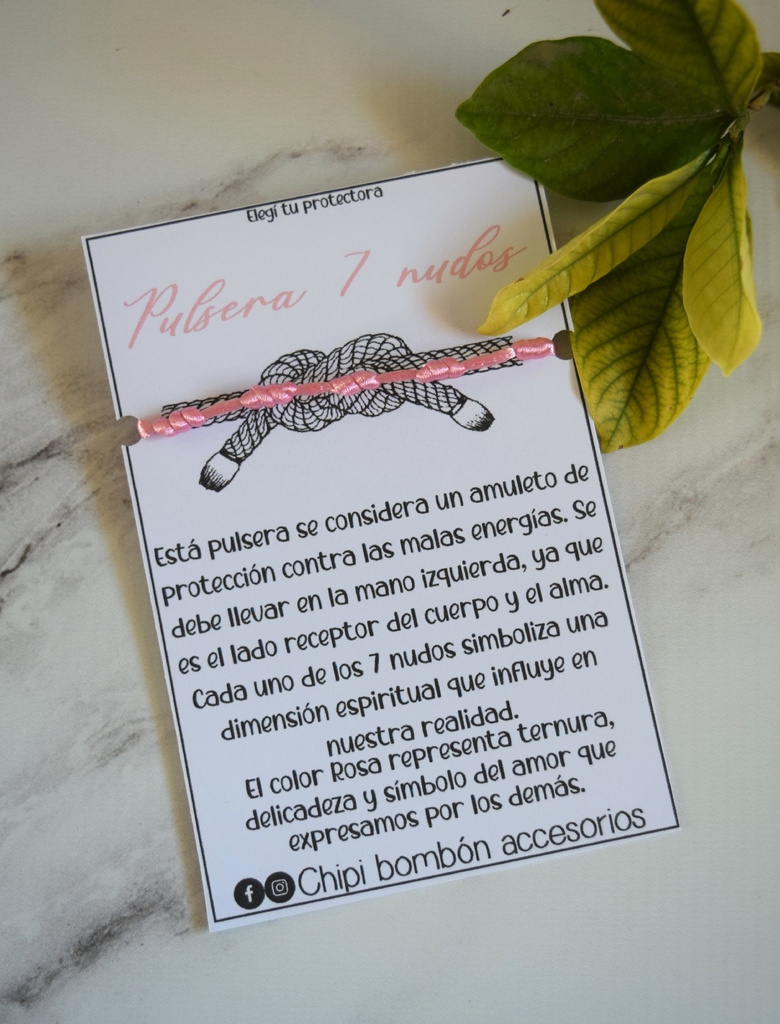 Elegí tu protectora
Pulsera 7 nudos
Está pulsera se considera un amuleto de
protección contra las malas energías. Se
debe llevar en la mano izquierda, ya que
es el lado receptor del cuerpo y el alma.
Cada uno de los 7 nudos simboliza una
dimensión espiritual que influye en
nuestra realidad.
El color Rosa representa ternura,
delicadeza y símbolo del amor que
expresamos por los demás.
Chipi bombón accesorios